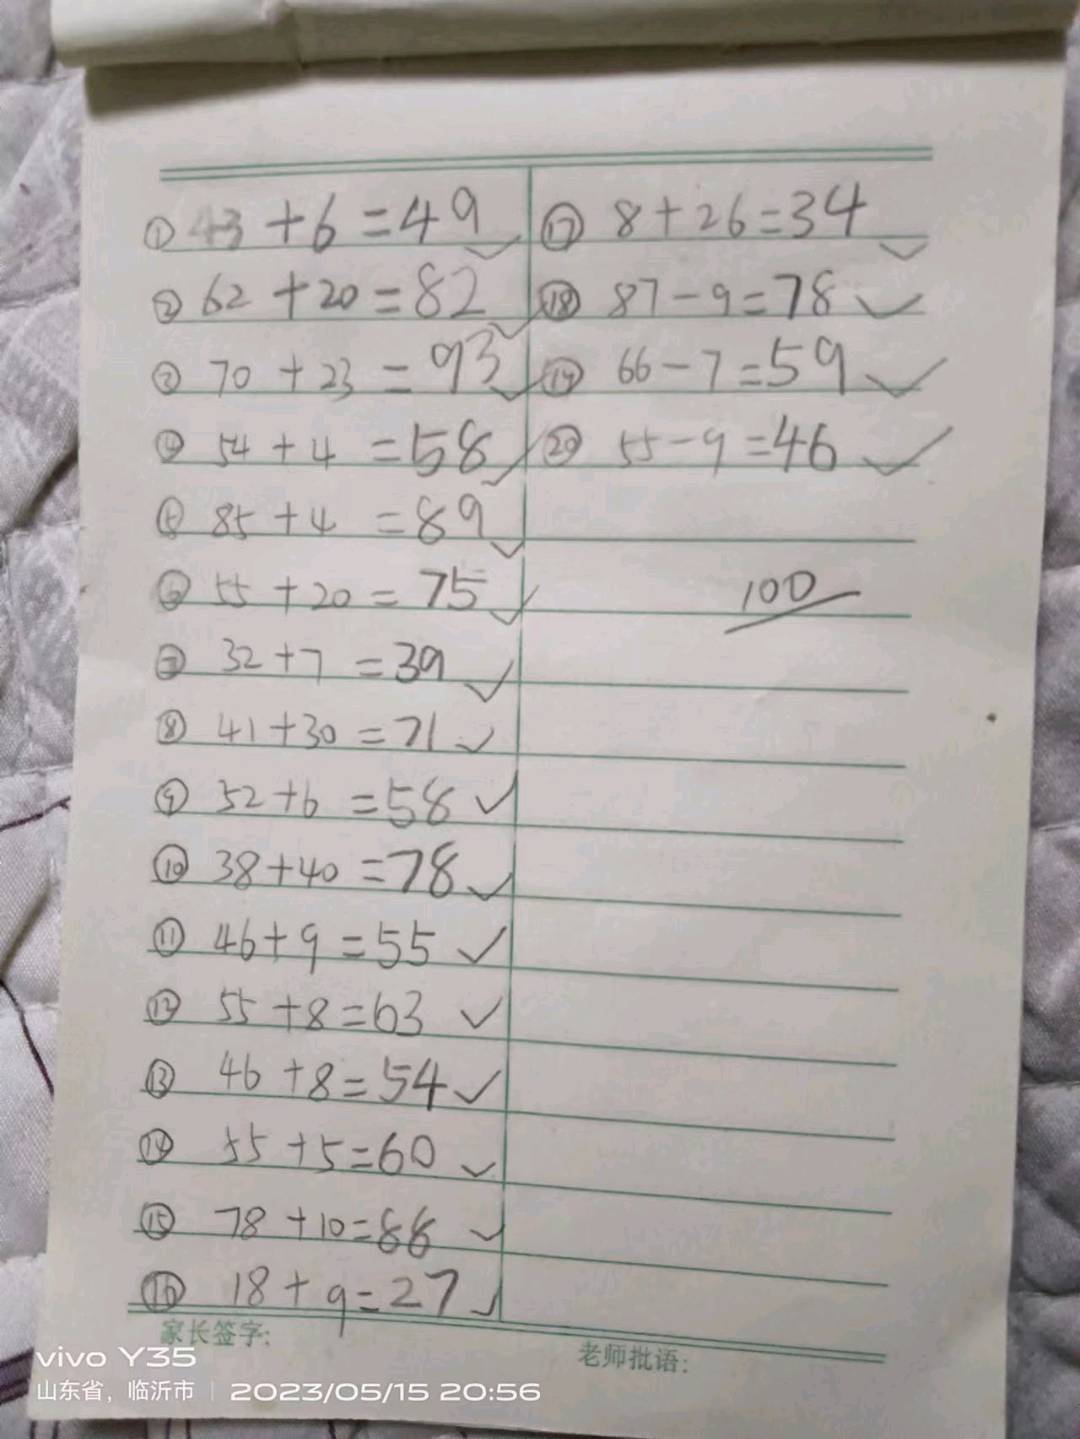 ① 43+6=49
② 62+20=82
③ 70+23=93
④ 54+4=58
⑤ 85+4=89
⑥ 55+20=75
⑦ 32+7=39
⑧ 41+30=71
⑨ 52+6=58
⑩ 38+40=78
⑪ 46+9=55
⑫ 55+8=63
⑬ 46+8=54
⑭ 55+5=60
⑮ 78+10=88
⑯ 18+9=27
⑰ 8+26=34
⑱ 87-9=78
⑲ 66-7=59
⑳ 55-9=46
100
家长签字:
老师批语:
vivo Y35
山东省，临沂市 | 2023/05/15 20:56